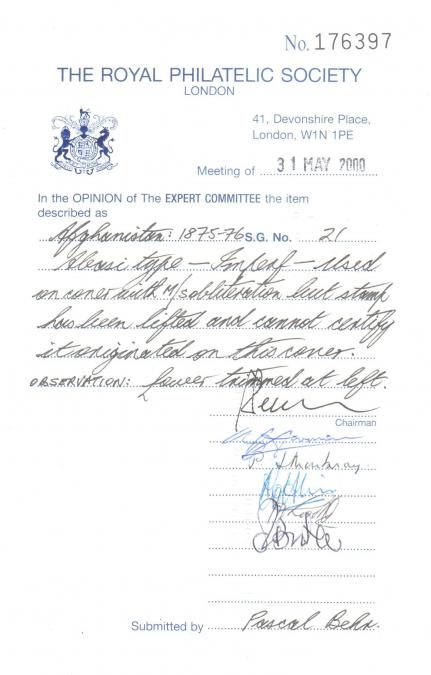 No. 176397
THE ROYAL PHILATELIC SOCIETY
LONDON
41, Devonshire Place,
London, W1N 1PE
Meeting of 31 MAY 2000
In the OPINION of The EXPERT COMMITTEE the item
described as
Afghanistan: 1875-76 S.G. No. 21
Abasi type – Imperf – Used
on cover with M/S obliteration but stamp
has been lifted and cannot certify
it originated on this cover.
OBSERVATION: Cover trimmed at left.
Chairman
Submitted by Pascal Behr.